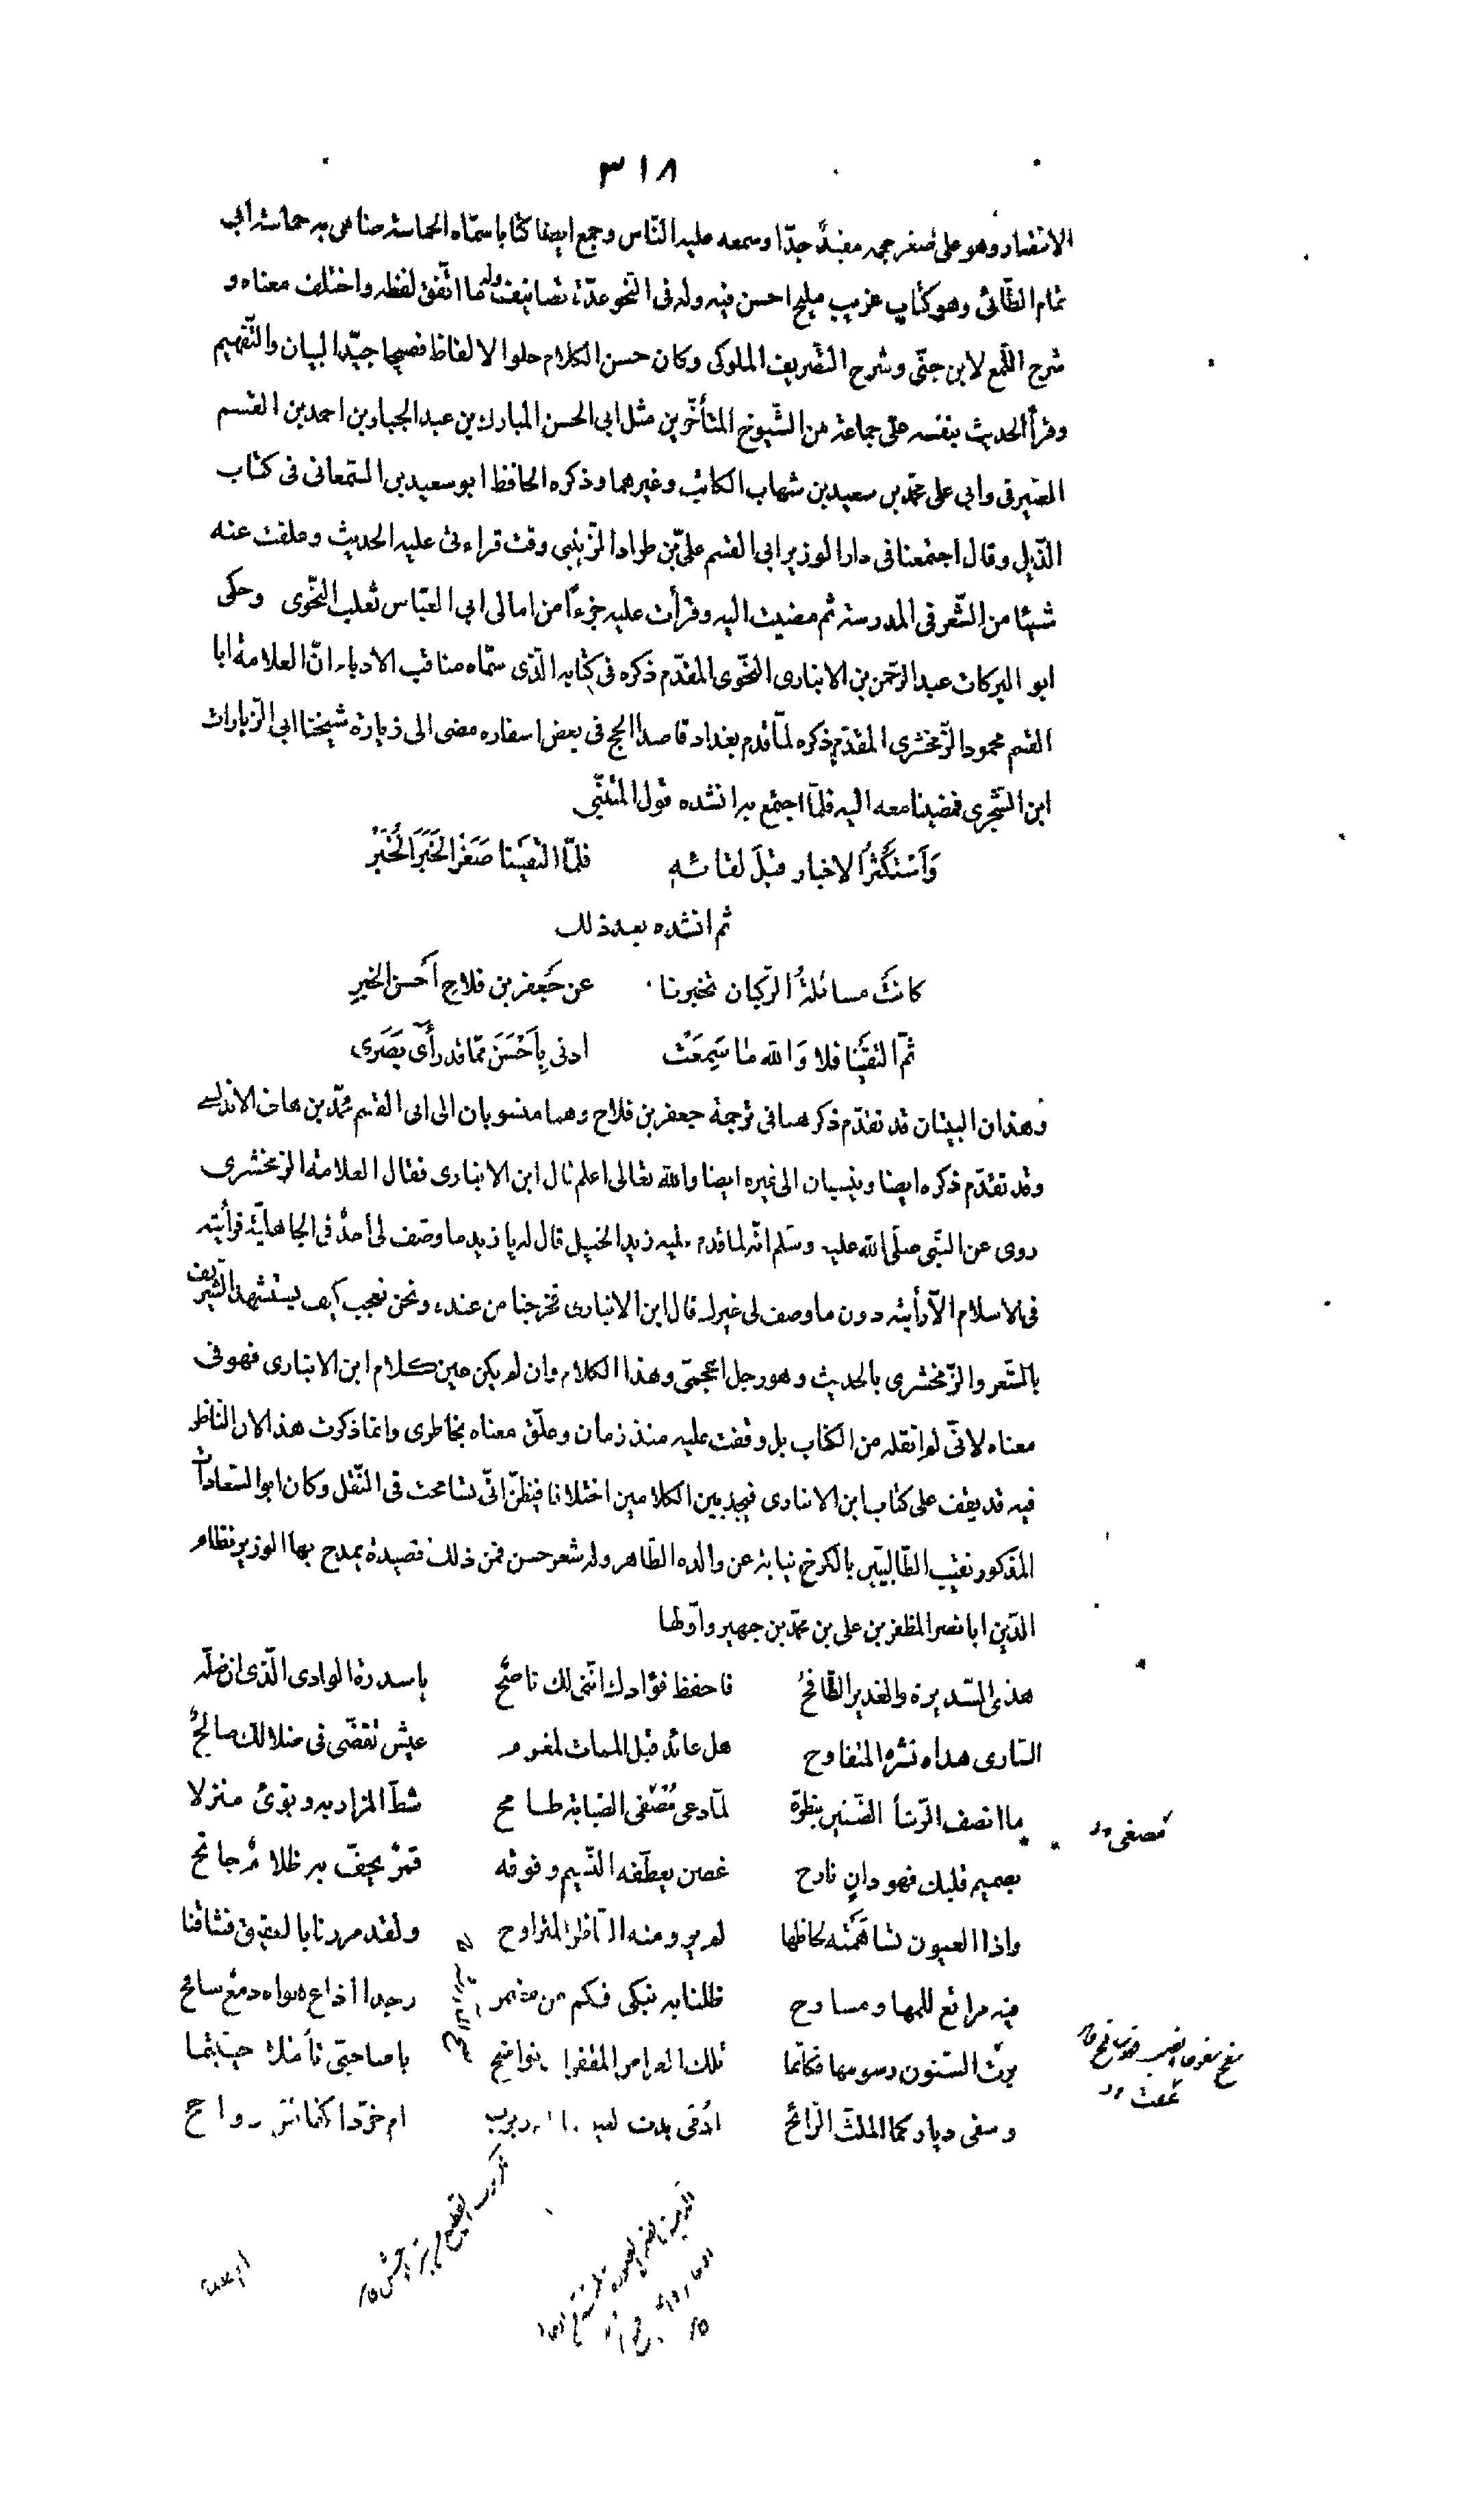 ٣١٨
الانتصار وهو على صغر حجمه مفيد جدّا وسمعه عليه النّاس وجمع ايضا كتابا سمّاه الحماسة ضاهى به حماسة ابى
تمام الطّائى وهو كتاب غريب مليح احسن فيه وله فى النحو عدّة تصانيف وله ما اتّفق لفظه واختلف معناه و
شرح اللّمع لابن جنّى وشرح التّصريف الملوكى وكان حسن الكلام حلو الالفاظ فصيحا جيّد البيان والتّفهيم
وقرأ الحديث بنفسه على جماعة من الشّيوخ المتأخّرين مثل ابى الحسن المبارك بن عبد الجبار بن احمد بن القسم
الصّيرفى وابى على محمّد بن سعيد بن شهاب الكاتب وغيرهما وذكره الحافظ ابو سعيد بن السّمعانى فى كتاب
الذّيل وقال اجتمعنا فى دار الوزير ابى القسم علىّ بن طراد الزّينبى وقت قراءتى عليه الحديث وعلقت عنه
شيئا من الشّعر فى المدرسة ثم مضيت اليه وقرأت عليه جزءًا من امالى ابى العبّاس ثعلب النّحوى وحكى
ابو البركات عبد الرّحمن بن الانبارى النّحوى المقدّم ذكره فى كتابه الّذى سمّاه مناقب الادباء انّ العلامة ابا
القسم محمود الزّمخشرى المقدّم ذكره لمّا قدم بغداد قاصدا الحج فى بعض اسفاره مضى الى زيارة شيخنا ابى الزيارات
ابن الشّجرى فمضينا معه اليه فلمّا اجتمع به انشده قول المتنبّى
وَأَسْتَكْثِرُ الاخبار قبلَ لقائه فلمّا التقينا صَغَّرَ الخَبَرَ الخُبْرُ
ثم انشده بعد ذلك
كانَتْ مساءَلةُ الرّكبان تخبرنا عن جَعفر بن فلاحٍ أحسن الخبرِ
ثمّ التقَيْنا فلا وَالله ما سَمِعَتْ اذنى بِأَحْسَنَ ممّا قد رأى بَصَرى
وهذان البيتان قد تقدّم ذكرهما فى ترجمة جعفر بن فلاح وهما منسوبان الى ابى القسم محمّد بن هانى الاندلسى
وقد تقدّم ذكره ايضا وينسبان الى غيره ايضا والله تعالى اعلم قال ابن الانبارى فقال العلامة الزمخشرى
روى عن النّبى صلّى الله عليه وسلم انّه لما قدم عليه زيد الخيل قال له يا زيد ما وصف لى أحدٌ فى الجاهليّة فرأيته
فى الاسلام الّا رأيته دون ما وصف لى غيرك قال ابن الانبارى فخرجنا من عنده ونحن نعجب كيف يستشهد الشّريف
بالشّعر والزّمخشرى بالحديث وهو رجل اعجمىّ وهذا الكلام وان لم يكن عين كلام ابن الانبارى فهو فى
معناه لانّى لم انقله من الكتاب بل وقفت عليه منذ زمان وعلّق معناه بخاطرى وانما ذكرت هذا لان الناظر
فيه قد يقف على كتاب ابن الانبارى فيجد بين الكلامين اختلافا فيظنّ انّى تسامحت فى النّقل وكان ابو السّعادات
المذكور نقيب الطّالبيّين بالكرخ نيابة عن والده الطّاهر وله شعر حسن فمن ذلك قصيدة يمدح بها الوزير نظام
الدّين ابا نصر المظفر بن على بن محمّد بن جهير واوّلها
هذى السّديرة والغدير الطّافحُ فاحفظ فؤادك انّنى لك ناصحُ يا سدرة الوادى الّذى ان ضلّه
السّارى هداه نشره المتفاوح هل عائد قبل الممات لمغرم عيش تقضّى فى ضلالك صالحُ
ما انصف الرّشأ الضّنين بنظرة لمّا دعى مُصْغى الصّبابة طامح شطّ المزار به وبوّئ منزلا
مصغى
بصميم قلبك فهو دانٍ نازح غصن يعطّفه النّسيم وفوقه قمرٌ يحفّ به ظلامٌ جانح
واذا العيون تساهَمَتْه لحاظها لم يرو منه النّاظر المتراوح ولقد مررنا بالعقيق فشاقنا
فيه مراتع للمها ومسارح ظللنا به نبكى فكم من مضمر وجدا اذاع هواه دمع سافح
برت السّنون رسومها فكأنّما تلك العراص المقفرات نواضح يا صاحبىّ تأمّلا حيّيتما
وسقى دياركما الملثّ الرّائح أدُمى بدت لعيوننا ام ربرب ام خرّد اكفالهنّ رواجح